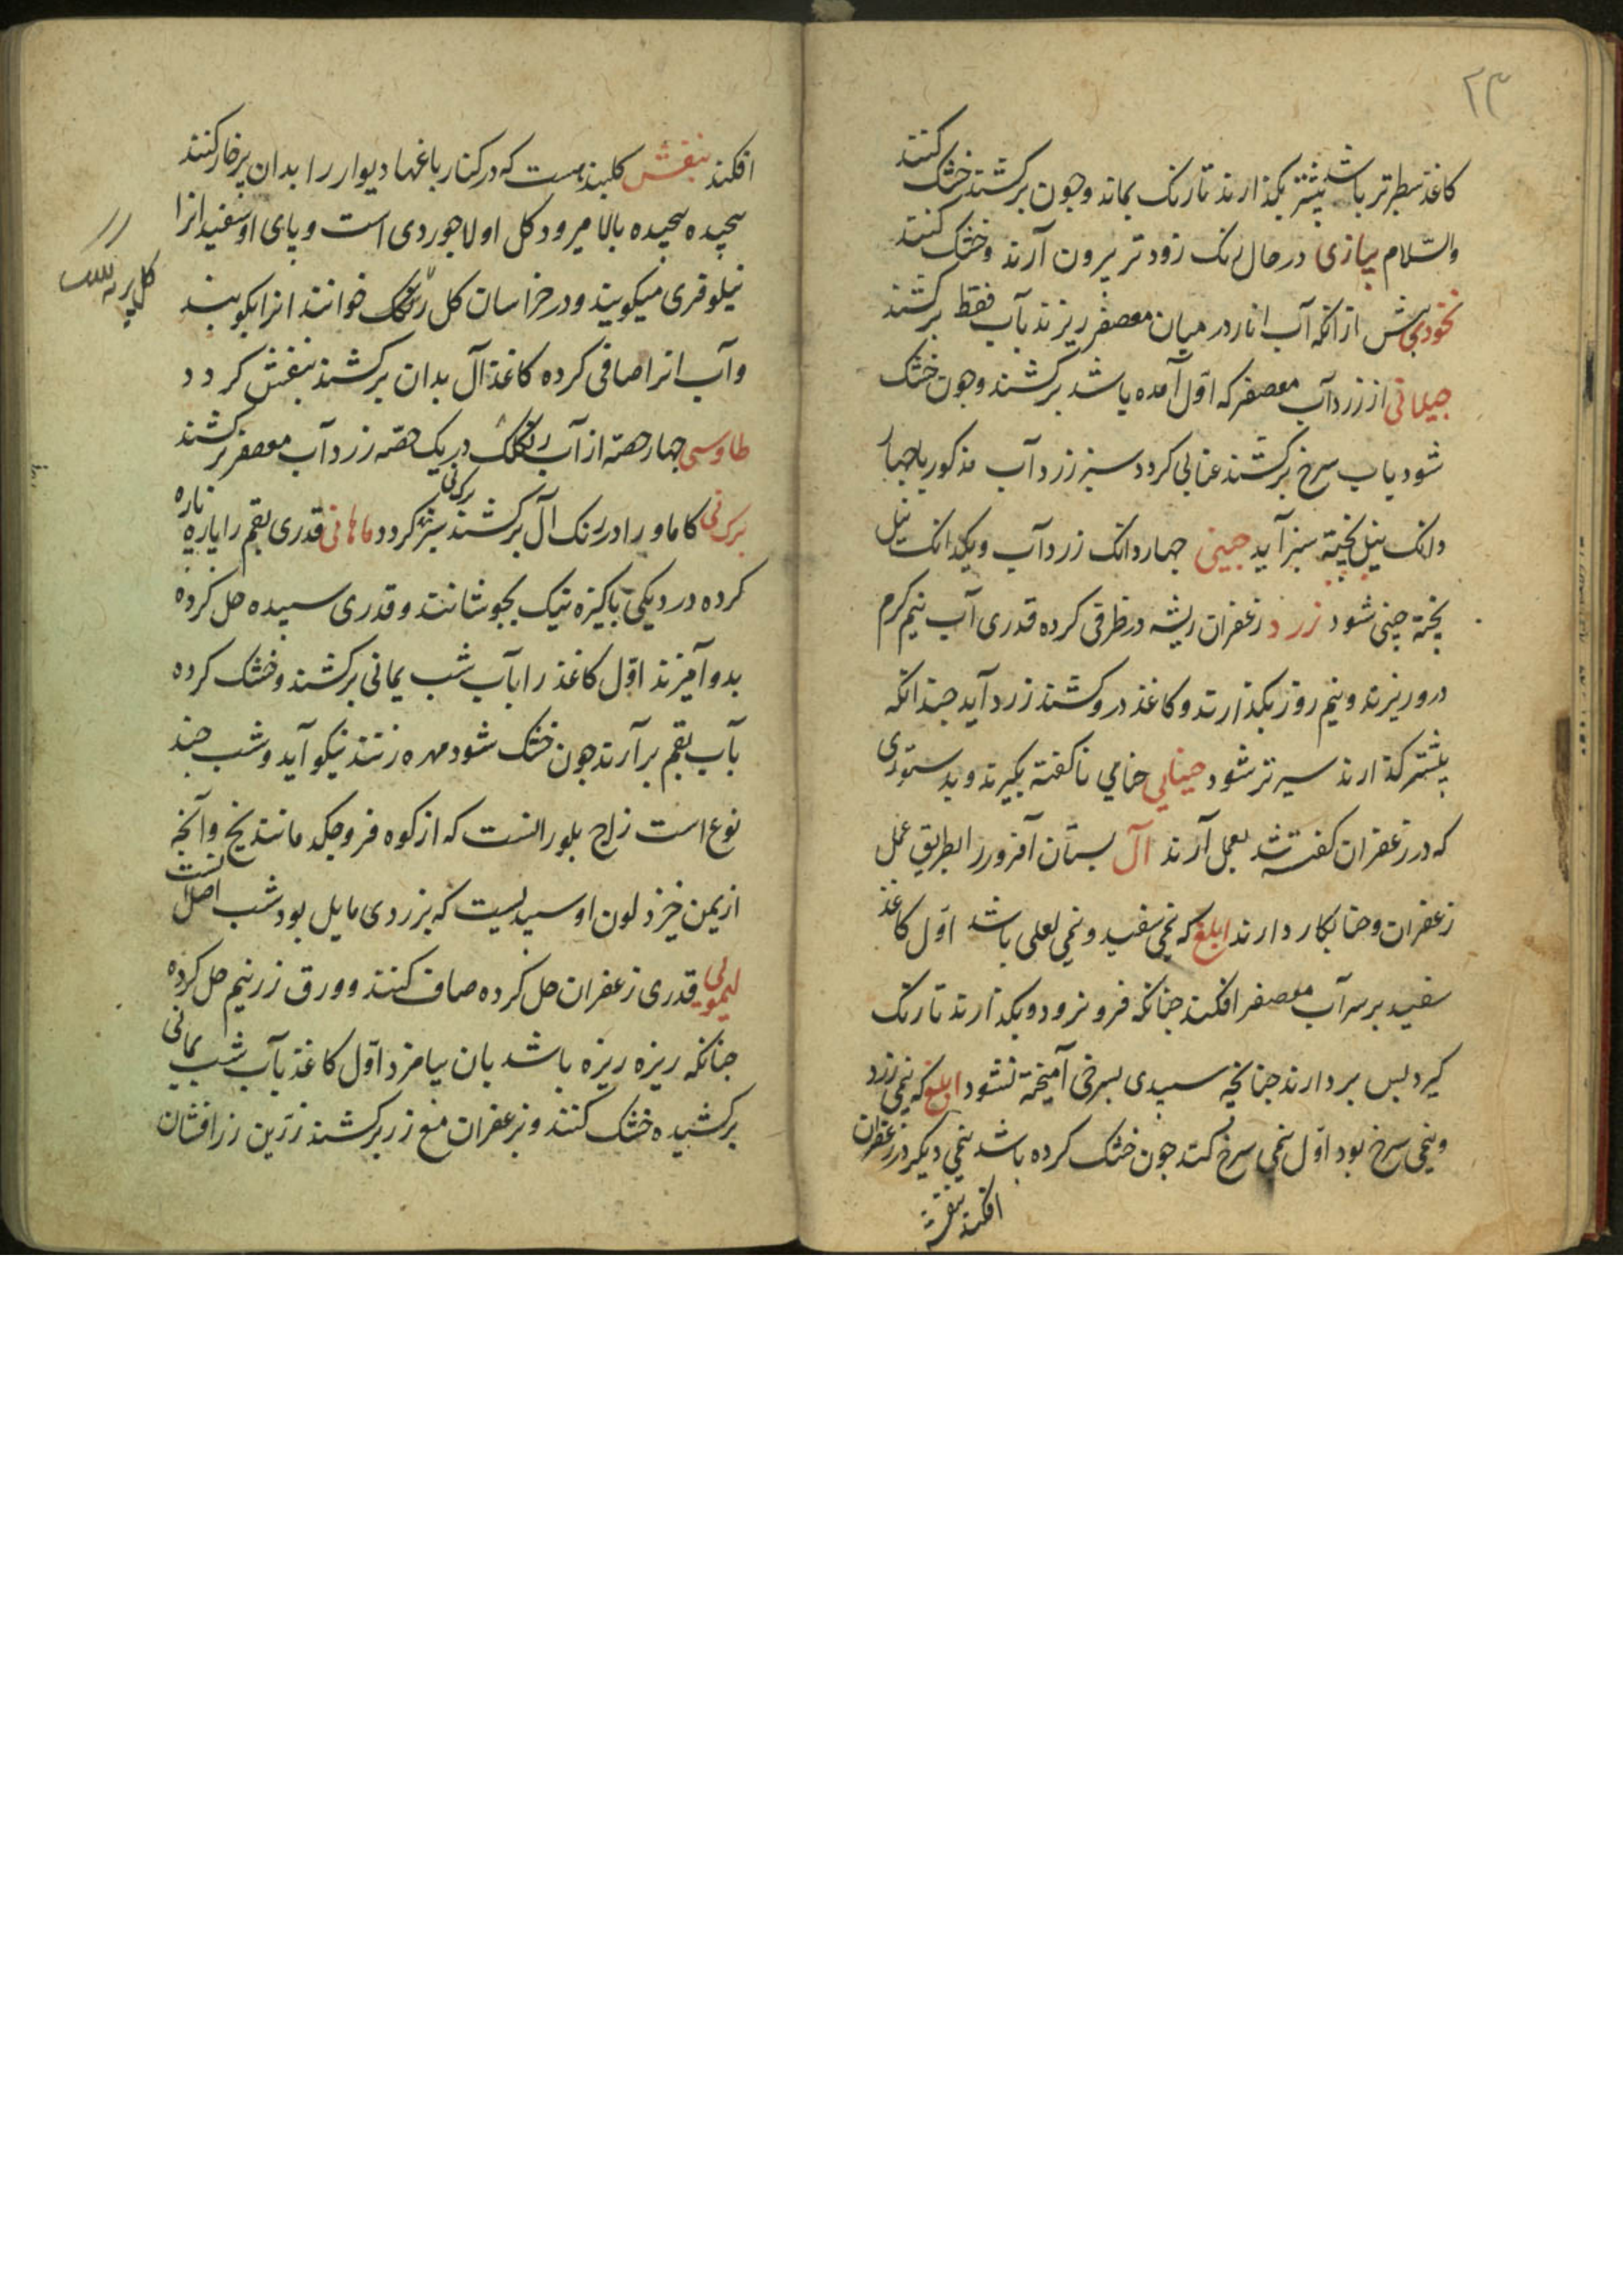 ۲۳
کاغذ سطبرتر باشد بیشتر بکذارند تا رنک بماند وچون برکشند خشک کنند
والسلام پیازی در حال رنک زودتر بیرون آرند وخشک کنند
نخودی پیش ازانکه آب انار در میان معصفر ریزند بآب فقط برکشند
از زردآب معصفر که اول آمده باشد برکشند وچون خشک
شود باب سرخ برکشند عنابی کردد سبز زردآب مذکور با چهار
دانک نیل پخته سبز آید چینی چهار دانک زردآب ویکدانک نیل
پخته چینی شود زرد زعفران ریشه در ظرفی کرده قدری آب نیم کرم
درو ریزند ونیم روز بکذارند وکاغذ درو کشند زرد آید چندانکه
بیشتر کذارند سیرتر شود حنایی حنامی ناکفته بکیرند وبدستوری
که در زعفران کفته شد بعمل آرند آل بستان آفروز را بطریق عمل
زعفران وحنا بکار دارند ابلغ که نیمی سفید ونیمی لعلی باشد اول کاغذ
سفید بر سر آب معصفر افکند چنانکه فرو نرود وبکذارند تا رنک
کیرد پس بردارند چنانچه سپیدی بسرخی آمیخته نشود ابلغ که نیمی زرد
ونیمی سرخ بود اول نیمی سرخ کند چون خشک کرده باشد نیمی دیکر در زعفران
افکند بنفش
افکند بنفش کلبندیست که در کنار باغها دیوار را بدان پرخار کنند
پیچیده پیچیده بالا میرود کل او لاجوردی است وپای او سفید انرا
نیلوفری میکویند ودر خراسان کل رنکک خوانند انرا بکوبند
وآب انرا صافی کرده کاغذ آل بدان برکشند بنفش کردد
طاوسی چهار حصه از آب رنکک در یک حصه زردآب معصفر برکشند
کاماو را در رنک آل برکشند کردد ماهانی قدری بقم را پاره پاره
کرده در دیکی پاکیزه نیک بجوشانند وقدری سپیده حل کرده
بدو آمیزند اول کاغذ را بآب شب یمانی برکشند وخشک کرده
بآب بقم برآرند چون خشک شود مهره زنند نیکو آید وشب چند
نوع است زاج بلور انست که از کوه فرو چکد مانند یخ وآنچه
از یمن خیزد لون او سپیدیست که بزردی مایل بود شب اصل انست
لیمویی قدری زعفران حل کرده صاف کنند وورق زر نیم حل کرده
چنانکه ریزه ریزه باشد بان بیامزد اول کاغذ بآب شب یمانی
برکشیده خشک کنند وبزعفران مع زر برکشند زرین زرافشان